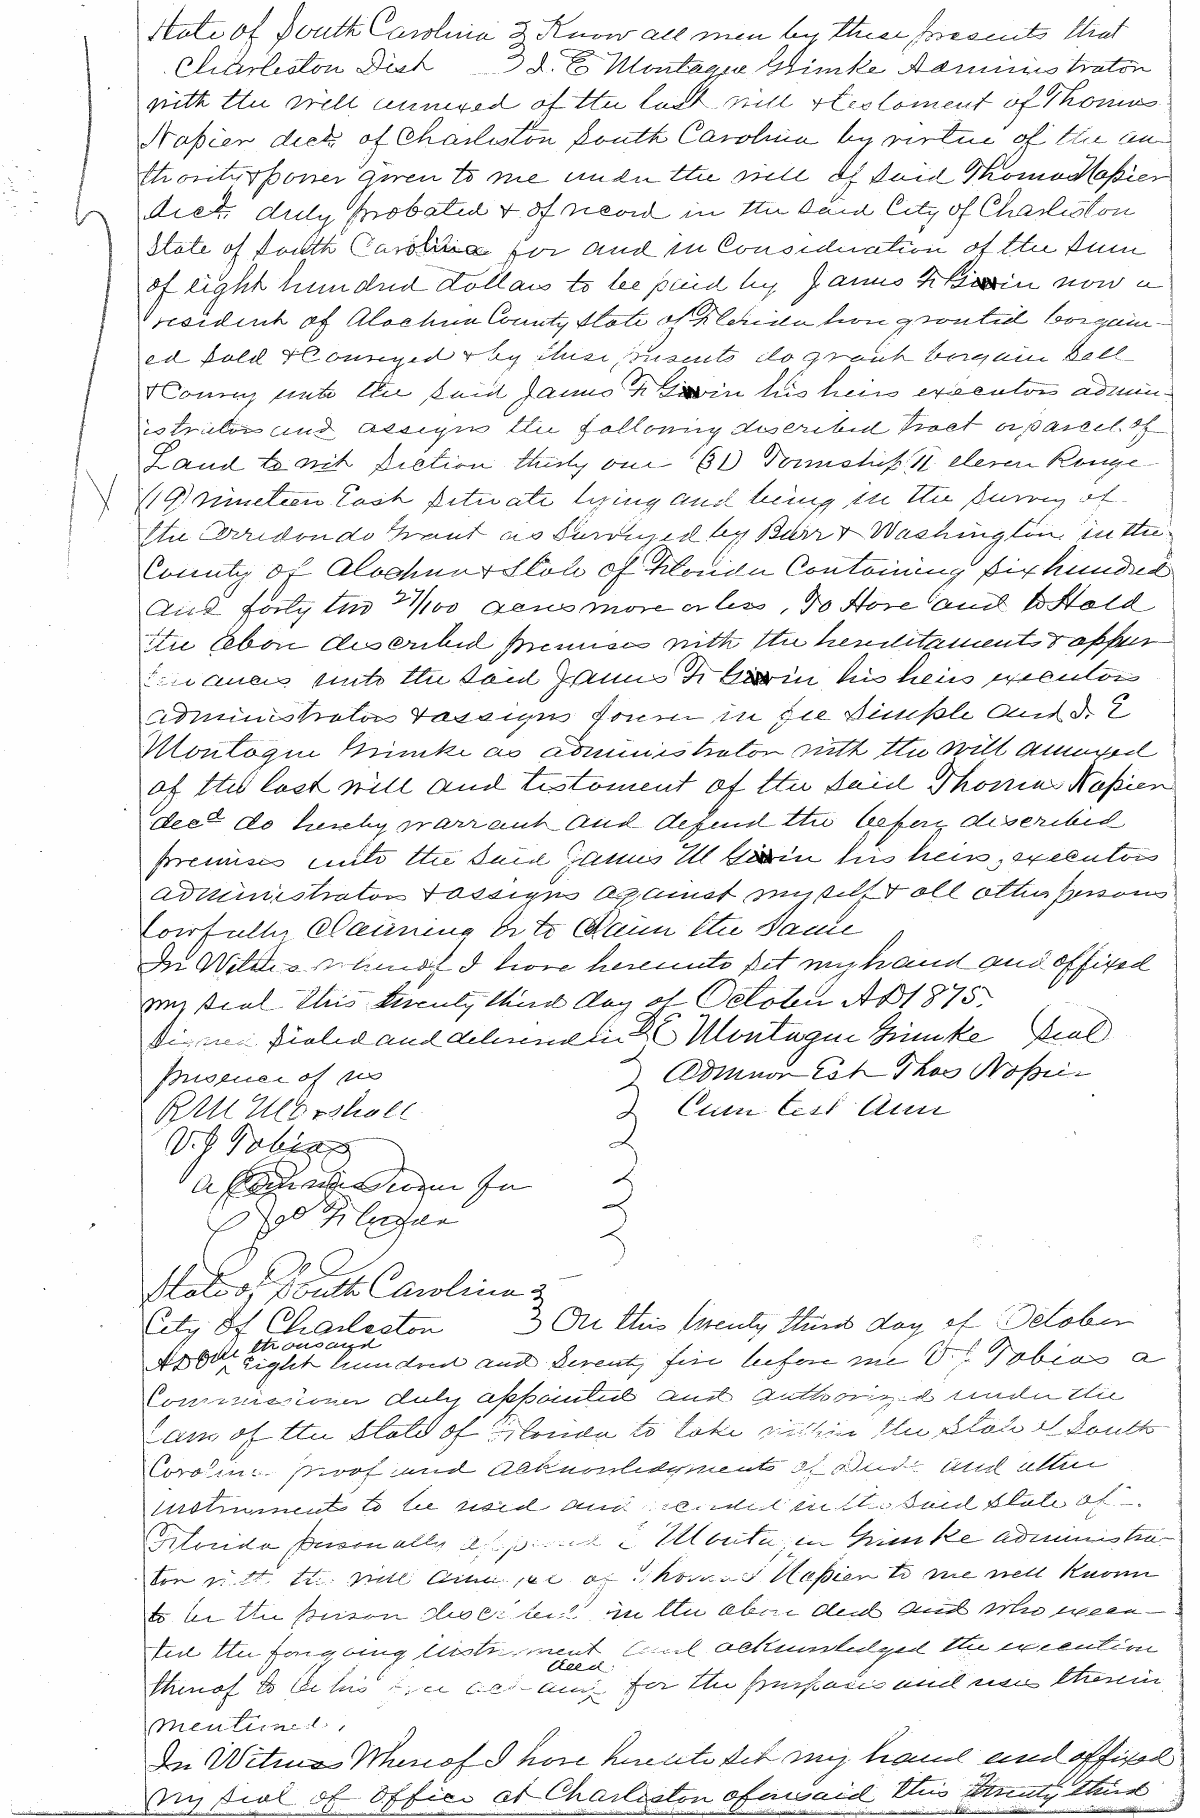 State of South Carolina } Know all men by these presents that
Charleston Dist } I. E Montague Grimke Administrator
with the will annexed of the last will & testament of Thomas
Napier decd. of Charleston South Carolina by virtue of the au
thority & power given to me under the will of said Thomas Napier
decd. duly probated & of record in the said City of Charleston
State of South Carolina for and in Consideration of the Sum
of eight hundred dollars to be paid by James now a
resident of Alachua County State of Florida have granted bargain-
ed Sold & Conveyed & by these presents do grant bargain Sell
& Convey unto the said James his heirs executors admin-
istrators and assigns the following described tract or parcel of
Land to wit Section thirty one (31) Township 11 eleven Range
(19) nineteen East situate lying and being in the Survey of
the Arredondo Grant as Surveyed by Burr & Washington in the
County of Alachua & State of Florida Containing Six hundred
and forty two 27/100 acres more or less, To Have and to Hold
the above described premises with the hereditaments & appur
tenances unto the said James his heirs executors
administrators & assigns forever in fee Simple And I. E
Montague Grimke as administrator with the will annexed
of the last will and testament of the said Thomas Napier
decd do hereby warrant and defend the before described
premises unto the said James M his heirs, executors
administrators & assigns against myself & all other persons
lawfully Claiming or to Claim the Same
In Witness whereof I have hereunto set my hand and affixed
my seal this twenty third day of October AD 1875.
Signed Sealed and delivered in } E Montague Grimke Seal
presence of us } Admnor Est Thos Napier
R M Marshall } Cum test Ann
V. J Tobias }
a Commissioner for }
State of South Carolina }
City of Charleston } On this twenty third day of October
thousand
AD One ^ Eight hundred and Seventy five before me V. J. Tobias a
Commissioner duly appointed and authorized under the
laws of the State of Florida to take within the State of South
Carolina proof and acknowledgments of Deeds and other
instruments to be used and recorded in the said State of
Florida personally appeared E Montague Grimke administra-
tor with the will annexed of Thomas Napier to me well known
to be the person described in the above deed and who execu-
ted the foregoing instrument and acknowledged the execution
deed
thereof to be his free act and ^ for the purposes and uses therein
mentioned.
In Witness Whereof I have hereunto set my hand and affixed
my seal of Office at Charleston aforesaid this twenty third